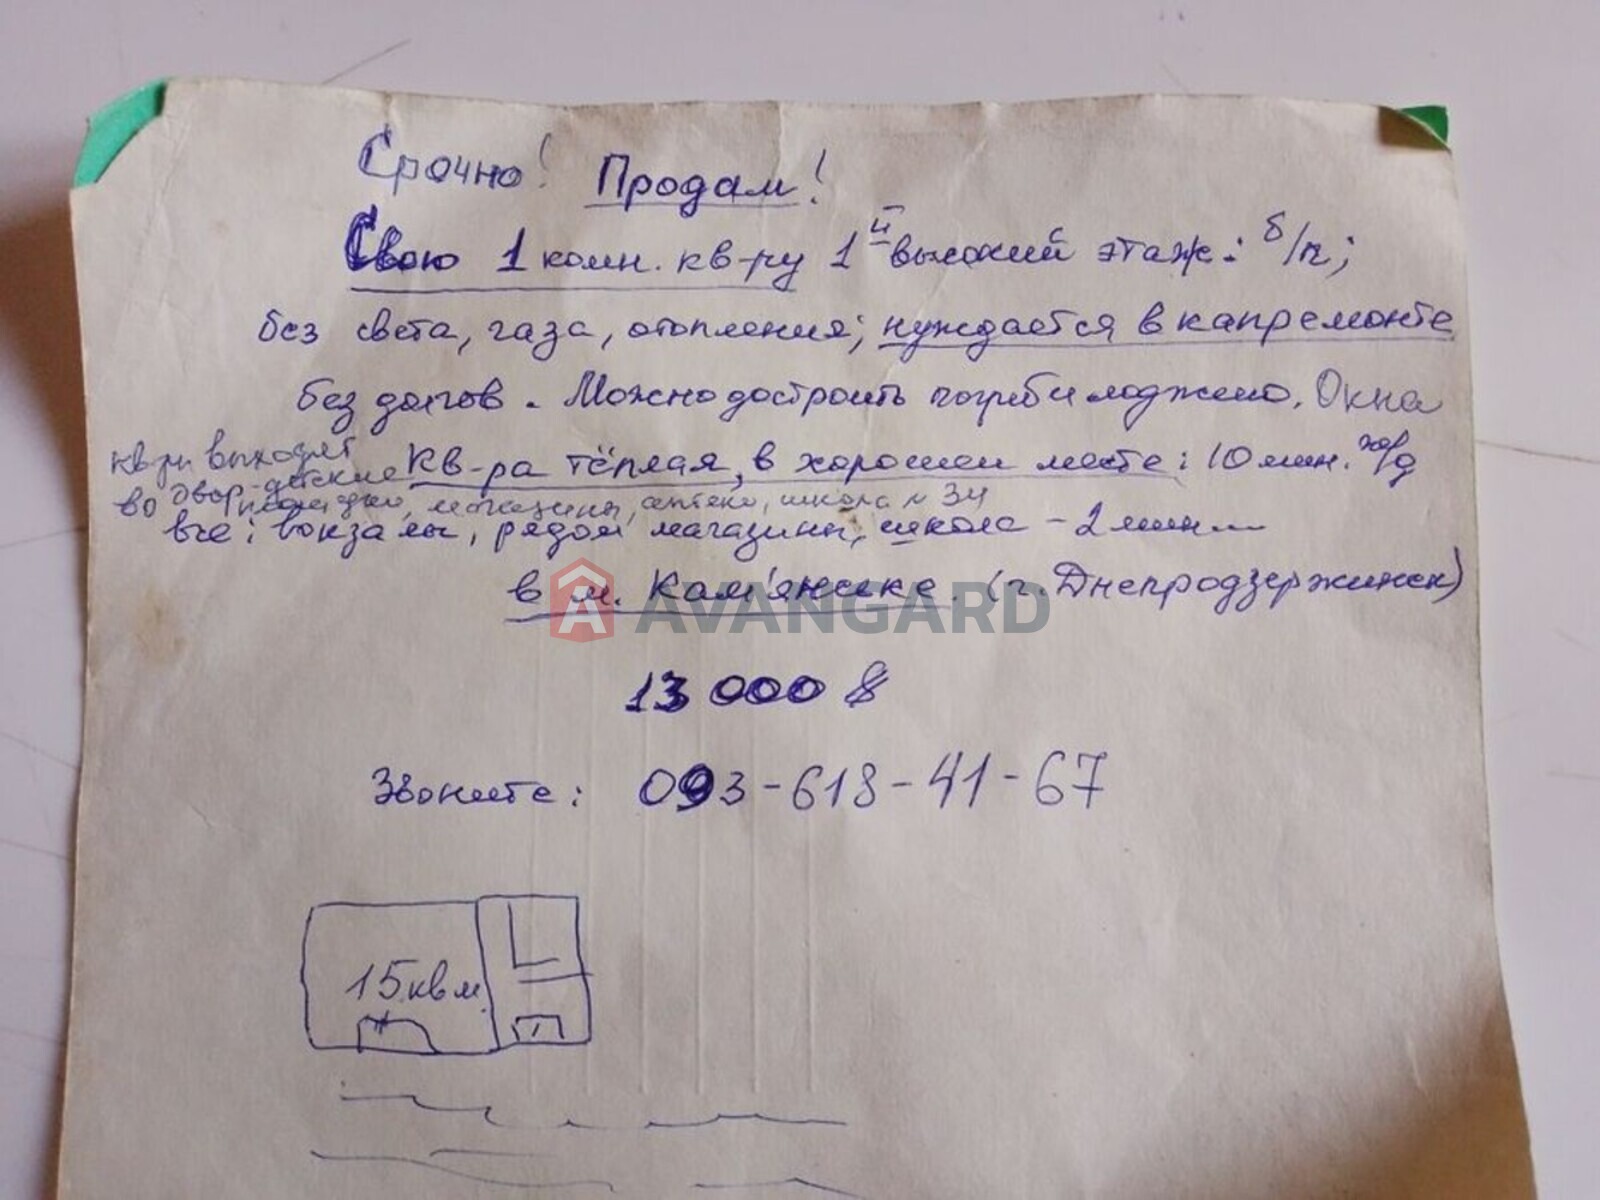 Срочно! Продам!
Свою 1 комн. кв-ру 1й высокий этаж: б/п;
без света, газа, отопления; нуждается в капремонте
без долгов. Можно достроить погреб и лоджию. Окна
кв-ры выходят
во двор - детские
площадки, магазины, аптека, школа № 34
Кв-ра тёплая, в хорошем месте: 10 мин. ж/д
все: вокзалы, рядом магазины, школа - 2 мин
в м. Кам'янське. (г. Днепродзержинск)
AVANGARD
13 000 $
Звоните: 093-618-41-67
15 кв м